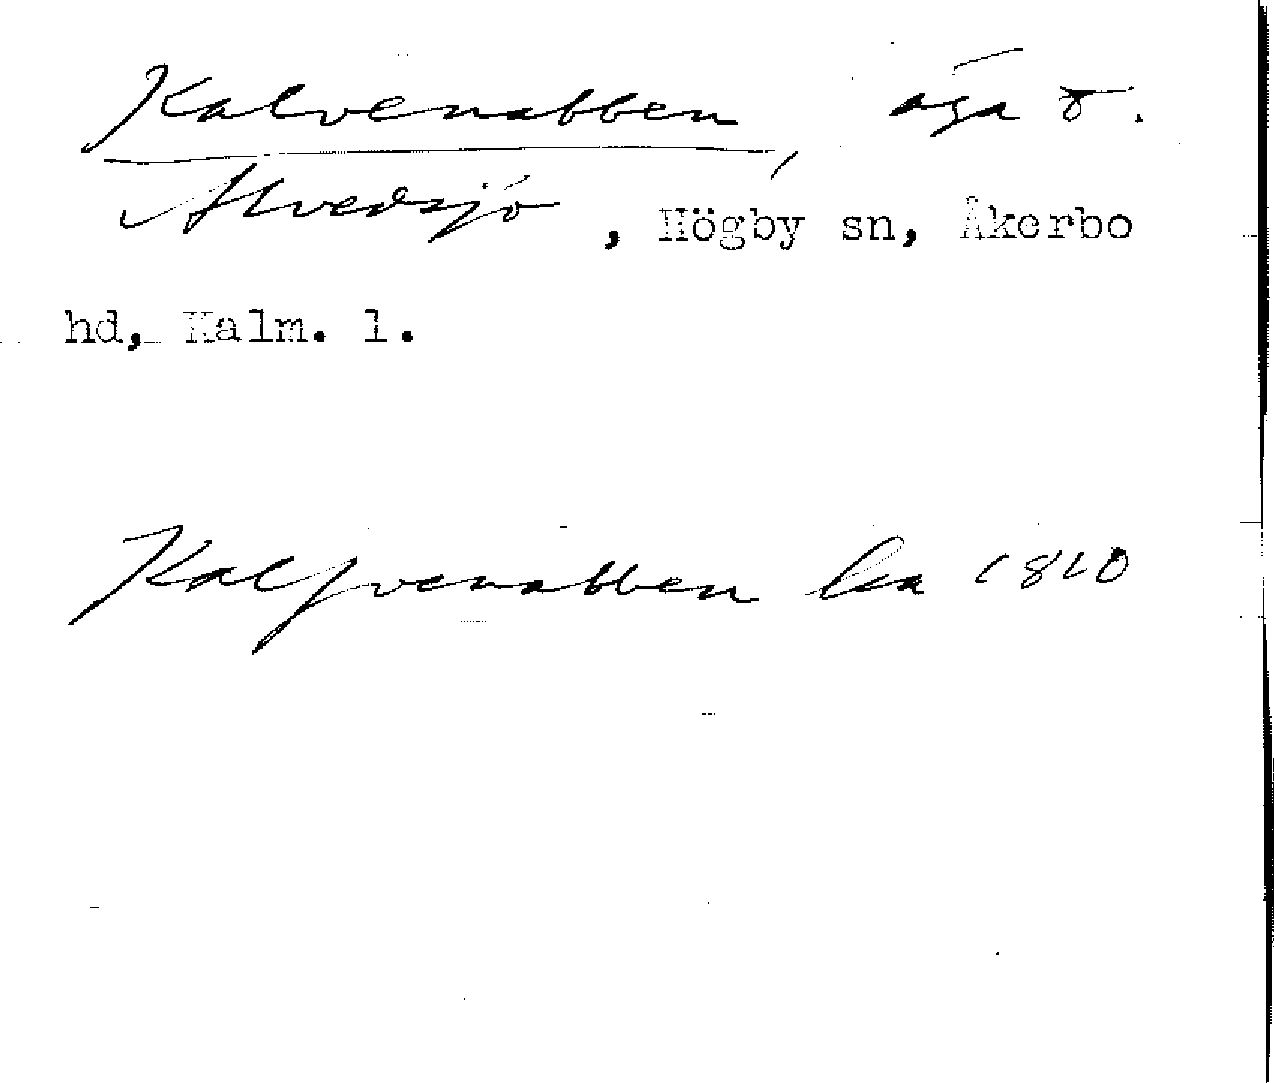 Kalvenabben, äga t.
Alvedsjö, Högby sn, Åkerbo
hd, Kalm. l.
Kalfvenabben ka 1810